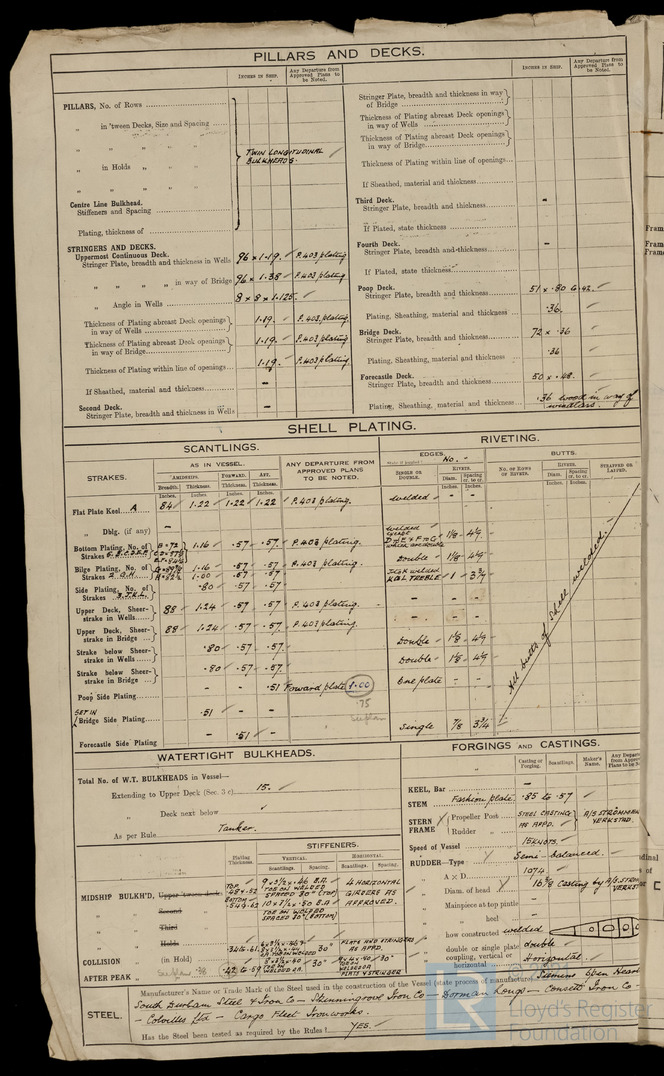 PILLARS AND DECKS.
INCHES IN SHIP. Any Departure from Approved Plans to be Noted.
PILLARS, No. of Rows
„ in 'tween Decks, Size and Spacing
„ „ „ „
„ in Holds „ „
TWIN LONGITUDINAL BULKHEADS. ✓
„ „ „ „
Centre Line Bulkhead.
Stiffeners and Spacing
Plating, thickness of
STRINGERS AND DECKS.
Uppermost Continuous Deck.
Stringer Plate, breadth and thickness in Wells 96 x 1.19. ✓ P.403 plating
„ „ „ „ in way of Bridge 96 x 1.38 ✓ P.403 plating
„ Angle in Wells 8 x 8 x 1.125.
Thickness of Plating abreast Deck openings in way of Wells 1.19. ✓ P.403 plating.
Thickness of Plating abreast Deck openings in way of Bridge 1.19. ✓ P.403 plating
Thickness of Plating within line of openings 1.19. ✓ P.403 plating
If Sheathed, material and thickness –
Second Deck.
Stringer Plate, breadth and thickness in Wells –
INCHES IN SHIP. Any Departure from Approved Plans to be Noted.
Stringer Plate, breadth and thickness in way of Bridge
Thickness of Plating abreast Deck openings in way of Wells
Thickness of Plating abreast Deck openings in way of Bridge
Thickness of Plating within line of openings
If Sheathed, material and thickness
Third Deck. –
Stringer Plate, breadth and thickness
If Plated, state thickness
Fourth Deck. –
Stringer Plate, breadth and thickness
If Plated, state thickness
Poop Deck.
Stringer Plate, breadth and thickness 51 x .80 & .42. ✓
Plating, Sheathing, material and thickness .36. ✓
Bridge Deck.
Stringer Plate, breadth and thickness 72 x .36 ✓
Plating, Sheathing, material and thickness .36 ✓
Forecastle Deck.
Stringer Plate, breadth and thickness 50 x .48. ✓
Plating, Sheathing, material and thickness .36 wood in way of windlass.
SHELL PLATING.
SCANTLINGS. RIVETING.
STRAKES. AS IN VESSEL. ANY DEPARTURE FROM APPROVED PLANS TO BE NOTED.
AMIDSHIPS. FORWARD. AFT.
Breadth. Thickness. Thickness. Thickness.
Inches. Inches. Inches. Inches.
EDGES. No. – BUTTS.
SINGLE OR DOUBLE. RIVETS. Diam. Spacing cr. to cr. Inches. Inches.
NO. OF ROWS OF RIVETS. RIVETS. Diam. Spacing cr. to cr. Inches. Inches. STRAPPED OR LAPPED.
Flat Plate Keel A 84 ✓ 1.22 ✓ 1.22 ✓ 1.22 P.403 plating. welded – – –
„ Dblg. (if any) –
Bottom Plating, No. of Strakes 1.16 ✓ .57 ✓ .57 ✓ P.403 plating. 1⅛ – 4⅞
Bilge Plating, No. of Strakes 2. G.H. 1.16 ✓ 1.00 ✓ .57 ✓ .57 ✓ P.403 plating. Double – 1⅛ – 4⅞
Side Plating, No. of Strakes 3. J.K.L. .80 ✓ .57 ✓ .57 ✓ J & K welded K & L TREBLE – 1 – 3¾
Upper Deck, Sheerstrake in Wells 88 1.24 ✓ .57 ✓ .57 ✓ P.403 plating. – – –
Upper Deck, Sheerstrake in Bridge 88 ✓ 1.24 ✓ .57 ✓ .57 ✓ P.403 plating. – – –
Strake below Sheerstrake in Wells .80 ✓ .57 ✓ .57. Double – 1⅛ – 4⅞
Strake below Sheerstrake in Bridge .80 ✓ .57 ✓ .57. Double – 1⅛ – 4⅞
Poop Side Plating – – .51 Forward plate 1.00 One plate – – –
.75
SET IN
Bridge Side Plating .51 ✓ – –
Forecastle Side Plating – .51 ✓ – Single 7/8 3¾
All butts of shell welded.
WATERTIGHT BULKHEADS.
Total No. of W.T. BULKHEADS in Vessel—
Extending to Upper Deck (Sec. 3 c) 15. ✓
„ Deck next below ✓
As per Rule Tanker.
STIFFENERS.
Plating Thickness. VERTICAL. HORIZONTAL.
Scantlings. Spacing. Scantlings. Spacing.
MIDSHIP BULK'D, Upper 'tween decks TOP .48 x .52 9 x 3½ x .46 B.A. TOE ON WELDED SPACED 30" (TOP) 4 HORIZONTAL GIRDERS AS APPROVED.
„ „ Second BOTTOM .54 & .62 10 x 3½ x .50 B.A. TOE ON WELDED SPACED 30" (BOTTOM)
„ „ Third
„ „ Holds
COLLISION „ (in Hold) .34 to .61 30" PLATE AND STRINGERS AS APPD.
AFTER PEAK „ „ .42 to .59 30" PLATE & STRINGER
FORGINGS AND CASTINGS.
Casting or Forging. Scantlings. Maker's Name.
KEEL, Bar –
STEM Fashion plate. .85 to .57 ✓
STERN FRAME { Propeller Post STEEL CASTINGS AS APPD. A/S STRÖMMEN VERKSTAD.
Rudder „
Speed of Vessel 15 KNOTS. ✓
RUDDER—Type Semi-balanced. ✓
„ A x D 1074
„ Diam. of head 16⅜ Casting by A/S STROM. VERKST
„ Mainpiece at top pintle –
„ „ heel –
„ how constructed welded
„ double or single plate double ✓
„ coupling, vertical or horizontal Horizontal. ✓
STEEL.
Manufacturer's Name or Trade Mark of the Steel used in the construction of the Vessel (state process of manufacture) Siemens Open Heart
South Durham Steel & Iron Co – Skinningrove Iron Co – Dorman Longs – Consett Iron Co –
– Colvilles Ltd – Cargo Fleet Ironworks.
Has the Steel been tested as required by the Rules? YES. ✓
LR
Lloyd's Register
Foundation